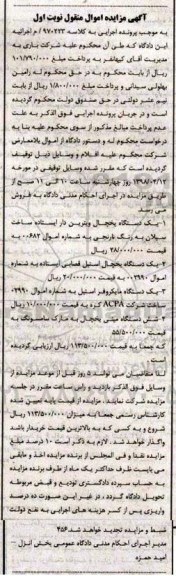 آگهی مزایده اموال منقول نوبت اول
به موجب پرونده اجرایی به کلاسه ۹۷۰۲۳۳ / م اجرائیه
این دادگاه که طی آن محکوم علیه شرکت یاری به
مدیریت آقای کیهانفر به پرداخت مبلغ ۱۰۱/۷۹۰/۰۰۰
ریال از بابت محکوم به در حق محکوم له رامین
بهلولی سیدانی و پرداخت مبلغ ۱/۸۰۰/۰۰۰ ریال از بابت
نیم عشر دولتی در حق صندوق دولت محکوم گردیده
است و در جریان پرونده اجرایی فوق الذکر به علت
عدم پرداخت مبالغ مذکور از سوی محکوم علیه بنا به
درخواست محکوم له و دستور دادگاه از اموال بلامعارض
شرکت محکوم علیه اقلام و وسایل ذیل توقیف
گردیده است که مقرر شده وسایل توقیفی در مورخه
۱۳۹۸/۰۳/۱۲ روز چهارشنبه ساعت ۱۰ الی ۱۱ صبح از
طریق مزایده در اجرای احکام مدنی دادگاه به فروش
می رسد
۱- یک دستگاه یخچال ویترین دار ایستاده ساخت
سبلان به رنگ نارنجی به شماره اموال ۰۰۶۸۲ به
قیمت ۲۸/۰۰۰/۰۰۰ ریال
۲- یک دستگاه یخچال استیل قصابی ایستاده به شماره
اموال ۰۰۲۹۹۰ به قیمت ۲۰/۰۰۰/۰۰۰ ریال
۳- یک دستگاه مایکروفر استیل به شماره اموال ۰۲۹۹۰
ساخت شرکت ACFA کره به قیمت ۱۰/۰۰۰/۰۰۰ ریال
۴- شش دستگاه مینی یخچال به مارک سامسونگ به
قیمت ۵۵/۵۰۰/۰۰۰
که جمعا به قیمت ۱۱۳/۵۰۰/۰۰۰ ریال ارزیابی گردیده
است
لذا متقاضیان می توانند ۵ روز قبل از موعد مزایده از
وسایل فوق الذکر بازدید و راس ساعت مقرر در جلسه
مزایده شرکت نمایند . مزایده از قیمت پایه تعیین شده
کارشناس رسمی جمعا به میزان ۱۱۳/۵۰۰/۰۰۰ ریال
شروع و به کسی که به بالاترین قیمت خریدار باشد
واگذار خواهد شد . لازم به ذکر است ۱۰ درصد مبلغ
مزایده نقدا و فی المجلس از برنده مزایده اخذ و مابقی
می بایست ظرف حداکثر یک ماه از طرف برنده مزایده
به حساب سپرده دادگستری تودیع و قبض مربوطه
تحویل دادگاه گردد ، در غیر این صورت ده درصد
واریزی پس از کسر هزینه های اجرایی به نفع دولت
ضبط و مزایده تجدید خواهد شد.۴۵۶
مدیر اجرای احکام مدنی دادگاه عمومی بخش انزل –
امید حمزه